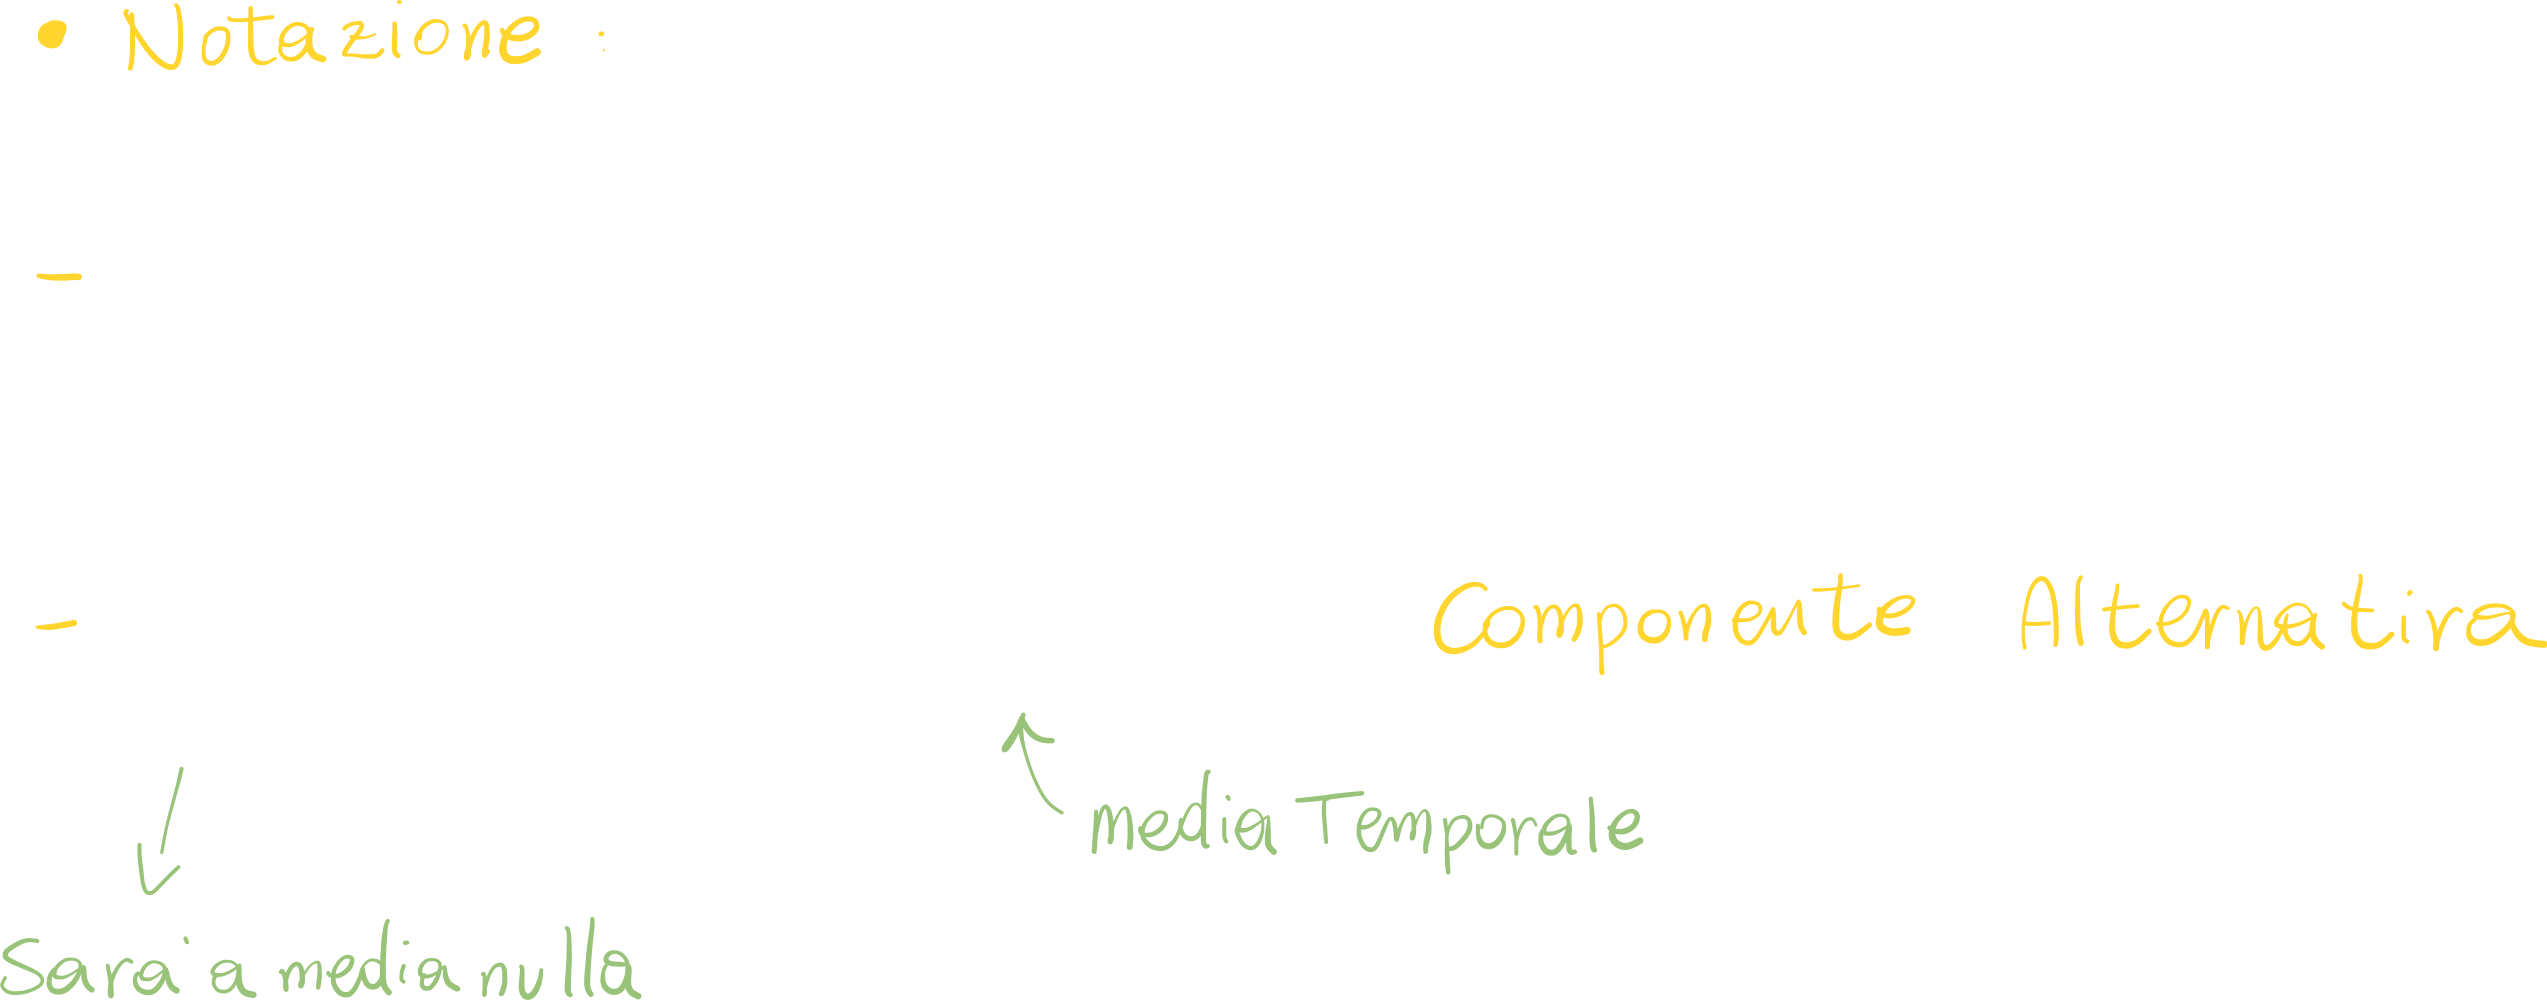 • Notazione :
-
- Componente Alternativa
media Temporale
Sarà a media nulla